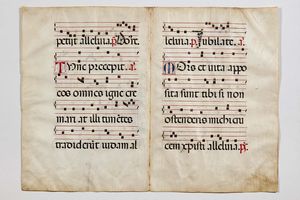 petijt alleluia. p̃. Dõt.
Tunc precepit. a.
eos omnes igne cre
mari at illi timẽtes
tradiderũt iudam al
leluia. p̃. Jubilate. a.
Mors et vita appo
sita sunt tibi si non
ostenderis michi cru
cem xp̃isti alleluia. p̃.